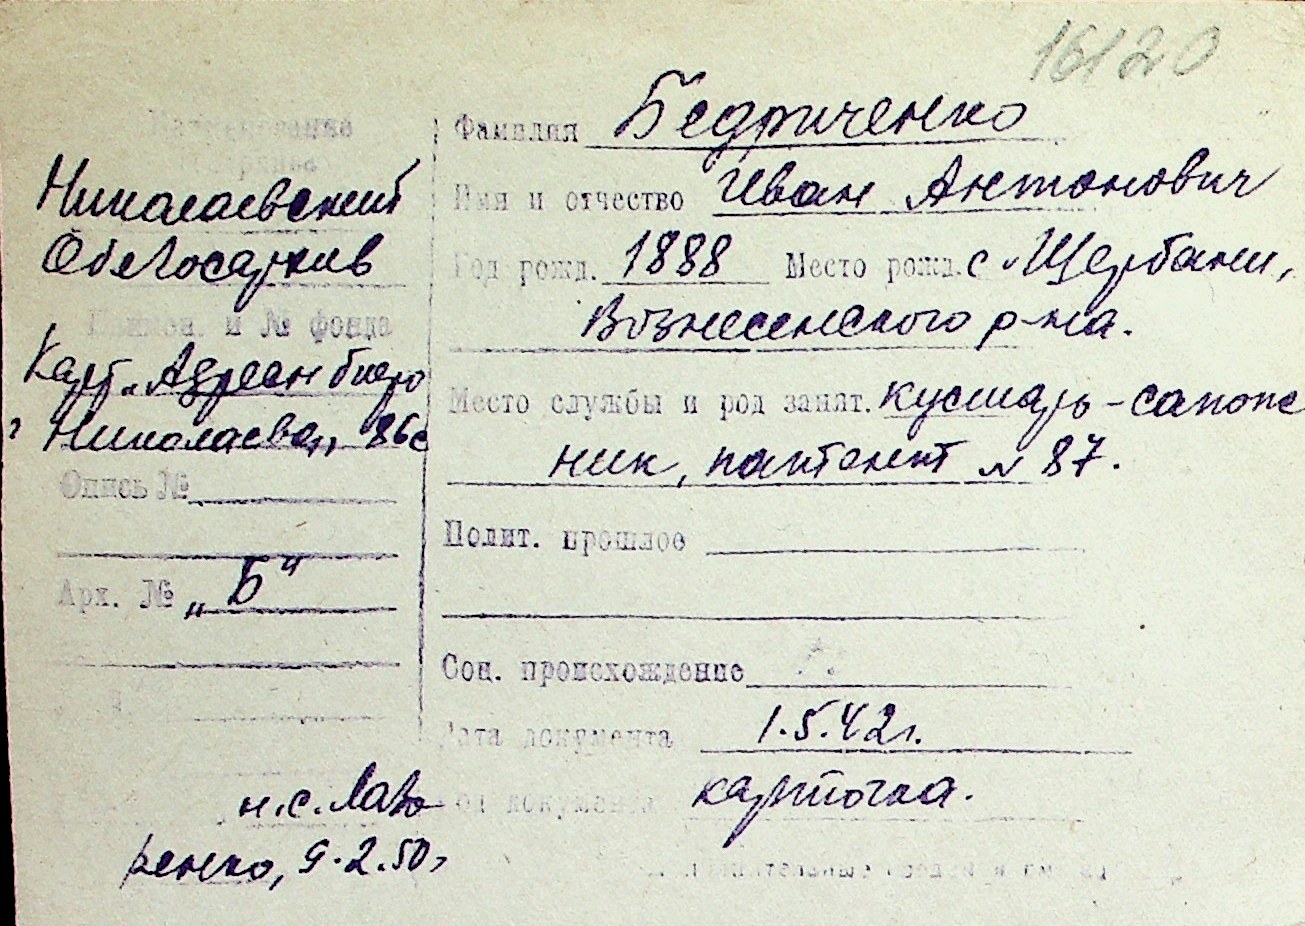 16120
Фамилия Бедриченко
Имя и отчество Иван Антонович
Год рожд. 1888 Место рожд. с. Щербани,
Вознесенского р-на.
Место службы и род занят. кустарь-сапож
ник, паптент № 87.
Полит. прошлое
Соц. происхождение
Дата документа 1.5.42г.
Вид документа карточка.
Наименование
Николаевский
Облгосархив
Наимен. и № фонда
Карт. „Адресн бюро
г Николаева„ 86с
Опись №
Арх. № „Б“
н.с. Лав
ренко, 9.2.50г